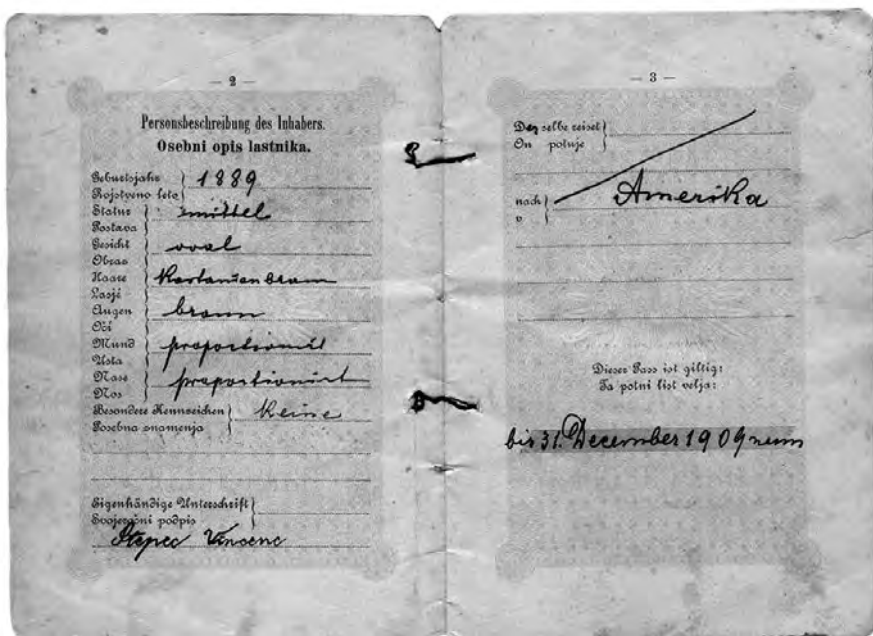 — 2 —
Personsbeschreibung des Inhabers.
Osebni opis lastnika.
Geburtsjahr
Rojstveno leto
1889
Statur
Postava
mittel
Gesicht
Obraz
oval
Haare
Lasjé
Kastanienbraun
Augen
Oči
braun
Mund
Usta
proportionirt
Nase
Nos
proportionirt
Besondere Kennzeichen
Posebna znamenja
Keine
Eigenhändige Unterschrift
Svojeročni podpis
Stepec Vincenc
— 3 —
Derselbe reiset
On potuje
nach
v
Amerika
Dieser Pass ist giltig:
Ta potni list velja:
bis 31. December 1909 neun